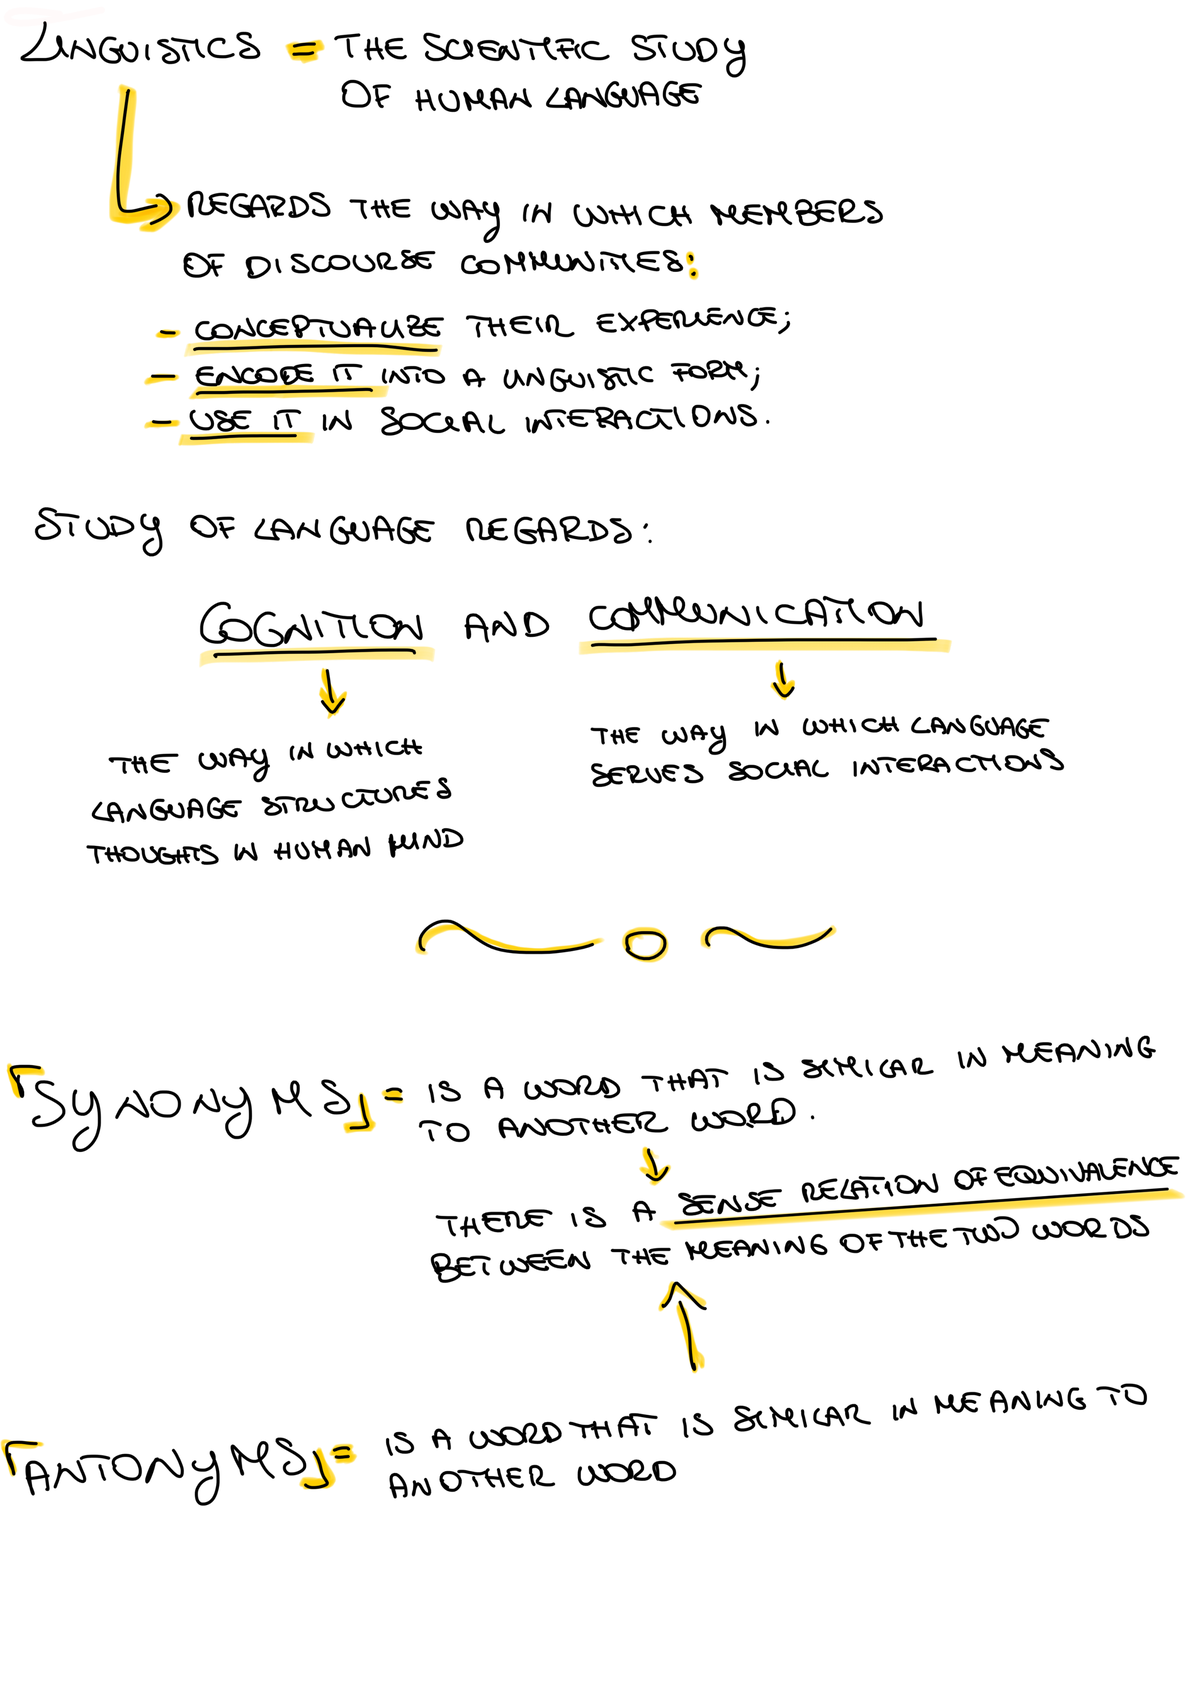 LINGUISTICS = THE SCIENTIFIC STUDY
OF HUMAN LANGUAGE
REGARDS THE WAY IN WHICH MEMBERS
OF DISCOURSE COMMUNITIES:
- CONCEPTUALIZE THEIR EXPERIENCE;
- ENCODE IT INTO A LINGUISTIC FORM;
- USE IT IN SOCIAL INTERACTIONS.
STUDY OF LANGUAGE REGARDS:
COGNITION AND COMMUNICATION
THE WAY IN WHICH
LANGUAGE STRUCTURES
THOUGHTS IN HUMAN MIND
THE WAY IN WHICH LANGUAGE
SERVES SOCIAL INTERACTIONS
「SYNONYMS」= IS A WORD THAT IS SIMILAR IN MEANING
TO ANOTHER WORD.
THERE IS A SENSE RELATION OF EQUIVALENCE
BETWEEN THE MEANING OF THE TWO WORDS
「ANTONYMS」= IS A WORD THAT IS SIMILAR IN MEANING TO
ANOTHER WORD